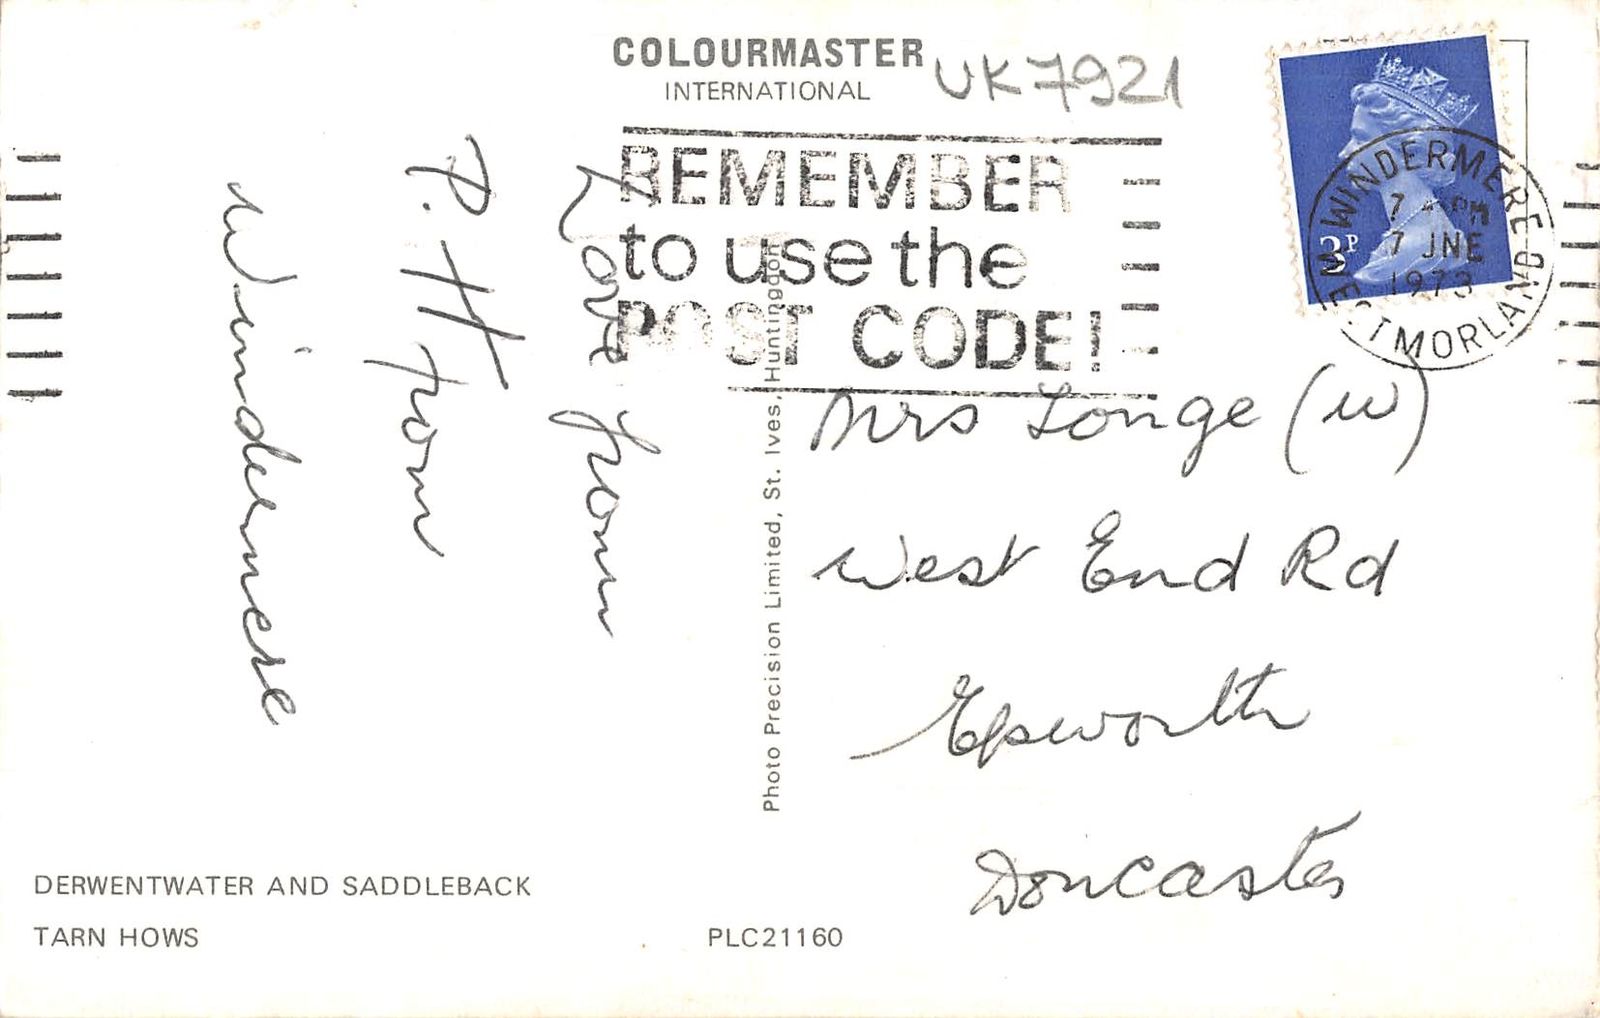 COLOURMASTER
INTERNATIONAL
UK7921
REMEMBER
to use the
POST CODE!
WINDERMERE
7 PM
7 JNE
1973
WESTMORLAND
3P
Love from
P. H from
Windermere
Mrs Longe (W)
West End Rd
Epworth
Doncaster
Photo Precision Limited, St. Ives, Huntingdon
DERWENTWATER AND SADDLEBACK
TARN HOWS
PLC21160